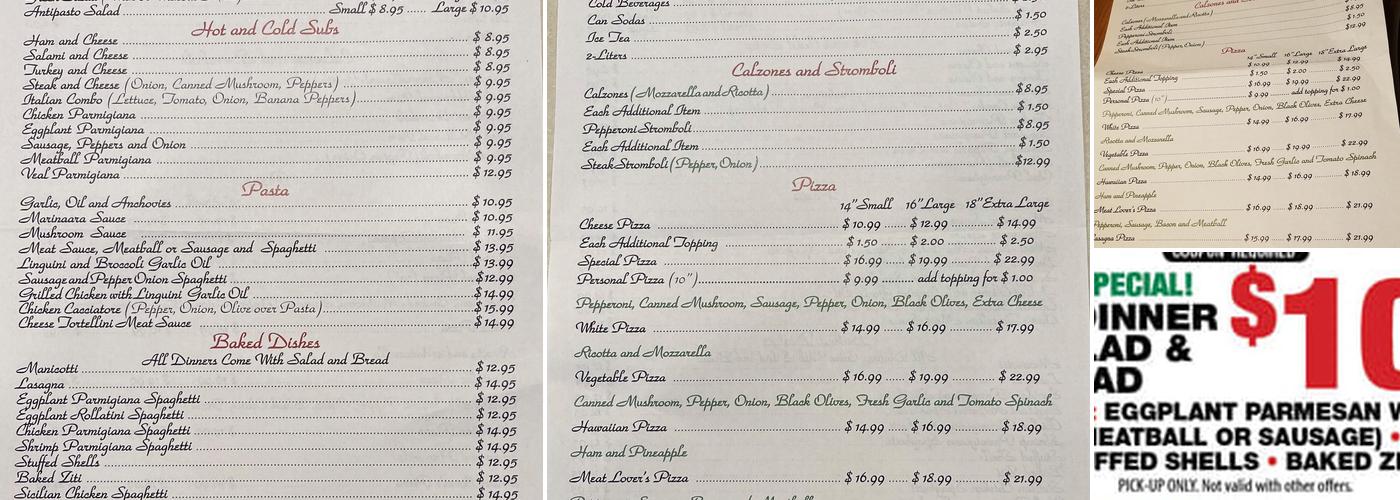 Antipasto Salad Small $ 8.95 ...... Large $ 10.95
Hot and Cold Subs
Ham and Cheese $ 8.95
Salami and Cheese $ 8.95
Turkey and Cheese $ 8.95
Steak and Cheese (Onion, Canned Mushroom, Peppers) $ 9.95
Italian Combo (Lettuce, Tomato, Onion, Banana Peppers) $ 9.95
Chicken Parmigiana $ 9.95
Eggplant Parmigiana $ 9.95
Sausage, Peppers and Onion $ 9.95
Meatball Parmigiana $ 9.95
Veal Parmigiana $ 12.95
Pasta
Garlic, Oil and Anchovies $ 10.95
Marinaara Sauce $ 10.95
Mushroom Sauce $ 11.95
Meat Sauce, Meatball or Sausage and Spaghetti $ 13.95
Linguini and Broccoli Garlic Oil $ 13.99
Sausage and Pepper Onion Spaghetti $12.99
Grilled Chicken with Linguini Garlic Oil $ 14.99
Chicken Cacciatore (Pepper, Onion, Olive over Pasta) $ 15.99
Cheese Tortellini Meat Sauce $ 14.99
Baked Dishes
All Dinners Come With Salad and Bread
Manicotti $ 12.95
Lasagna $ 14.95
Eggplant Parmigiana Spaghetti $ 12.95
Eggplant Rollatini Spaghetti $ 12.95
Chicken Parmigiana Spaghetti $ 14.95
Shrimp Parmigiana Spaghetti $ 14.95
Stuffed Shells $ 12.95
Baked Ziti $ 12.95
Sicilian Chicken Spaghetti $ 14.95
Cold Beverages
Can Sodas $ 1.50
Ice Tea $ 2.50
2-Liters $ 2.95
Calzones and Stromboli
Calzones (Mozzarella and Ricotta) $8.95
Each Additional Item $ 1.50
Pepperoni Stromboli $8.95
Each Additional Item $ 1.50
Steak Stromboli (Pepper, Onion) $12.99
Pizza
14"Small 16"Large 18"Extra Large
Cheese Pizza $ 10.99 $ 12.99 $ 14.99
Each Additional Topping $ 1.50 $ 2.00 $ 2.50
Special Pizza $ 16.99 $ 19.99 $ 22.99
Personal Pizza (10") $ 9.99 add topping for $ 1.00
Pepperoni, Canned Mushroom, Sausage, Pepper, Onion, Black Olives, Extra Cheese
White Pizza $ 14.99 $ 16.99 $ 17.99
Ricotta and Mozzarella
Vegetable Pizza $ 16.99 $ 19.99 $ 22.99
Canned Mushroom, Pepper, Onion, Black Olives, Fresh Garlic and Tomato Spinach
Hawaiian Pizza $ 14.99 $ 16.99 $ 18.99
Ham and Pineapple
Meat Lover's Pizza $ 16.99 $ 18.99 $ 21.99
2-Liters
Calzones (Mozzarella and Ricotta) $8.95
Each Additional Item $ 1.50
Pepperoni Stromboli $12.99
Each Additional Item
Steak Stromboli (Pepper, Onion)
Pizza
14"Small 16"Large 18"Extra Large
Cheese Pizza $ 10.99 $ 12.99 $ 14.99
Each Additional Topping $ 1.50 $ 2.00 $ 2.50
Special Pizza $ 16.99 $ 19.99 $ 22.99
Personal Pizza (10") $ 9.99 add topping for $ 1.00
Pepperoni, Canned Mushroom, Sausage, Pepper, Onion, Black Olives, Extra Cheese
White Pizza $ 14.99 $ 16.99 $ 17.99
Ricotta and Mozzarella
Vegetable Pizza $ 16.99 $ 19.99 $ 22.99
Canned Mushroom, Pepper, Onion, Black Olives, Fresh Garlic and Tomato Spinach
Hawaiian Pizza $ 14.99 $ 16.99 $ 18.99
Ham and Pineapple
Meat Lover's Pizza $ 16.99 $ 18.99 $ 21.99
Pepperoni, Sausage, Bacon and Meatball
asagna Pizza $ 15.99 $ 17.99 $ 21.99
COUPON REQUIRED
PECIAL!
INNER $10
AD &
AD
EGGPLANT PARMESAN W
EATBALL OR SAUSAGE) •
FFED SHELLS • BAKED ZI
PICK-UP ONLY. Not valid with other offers.